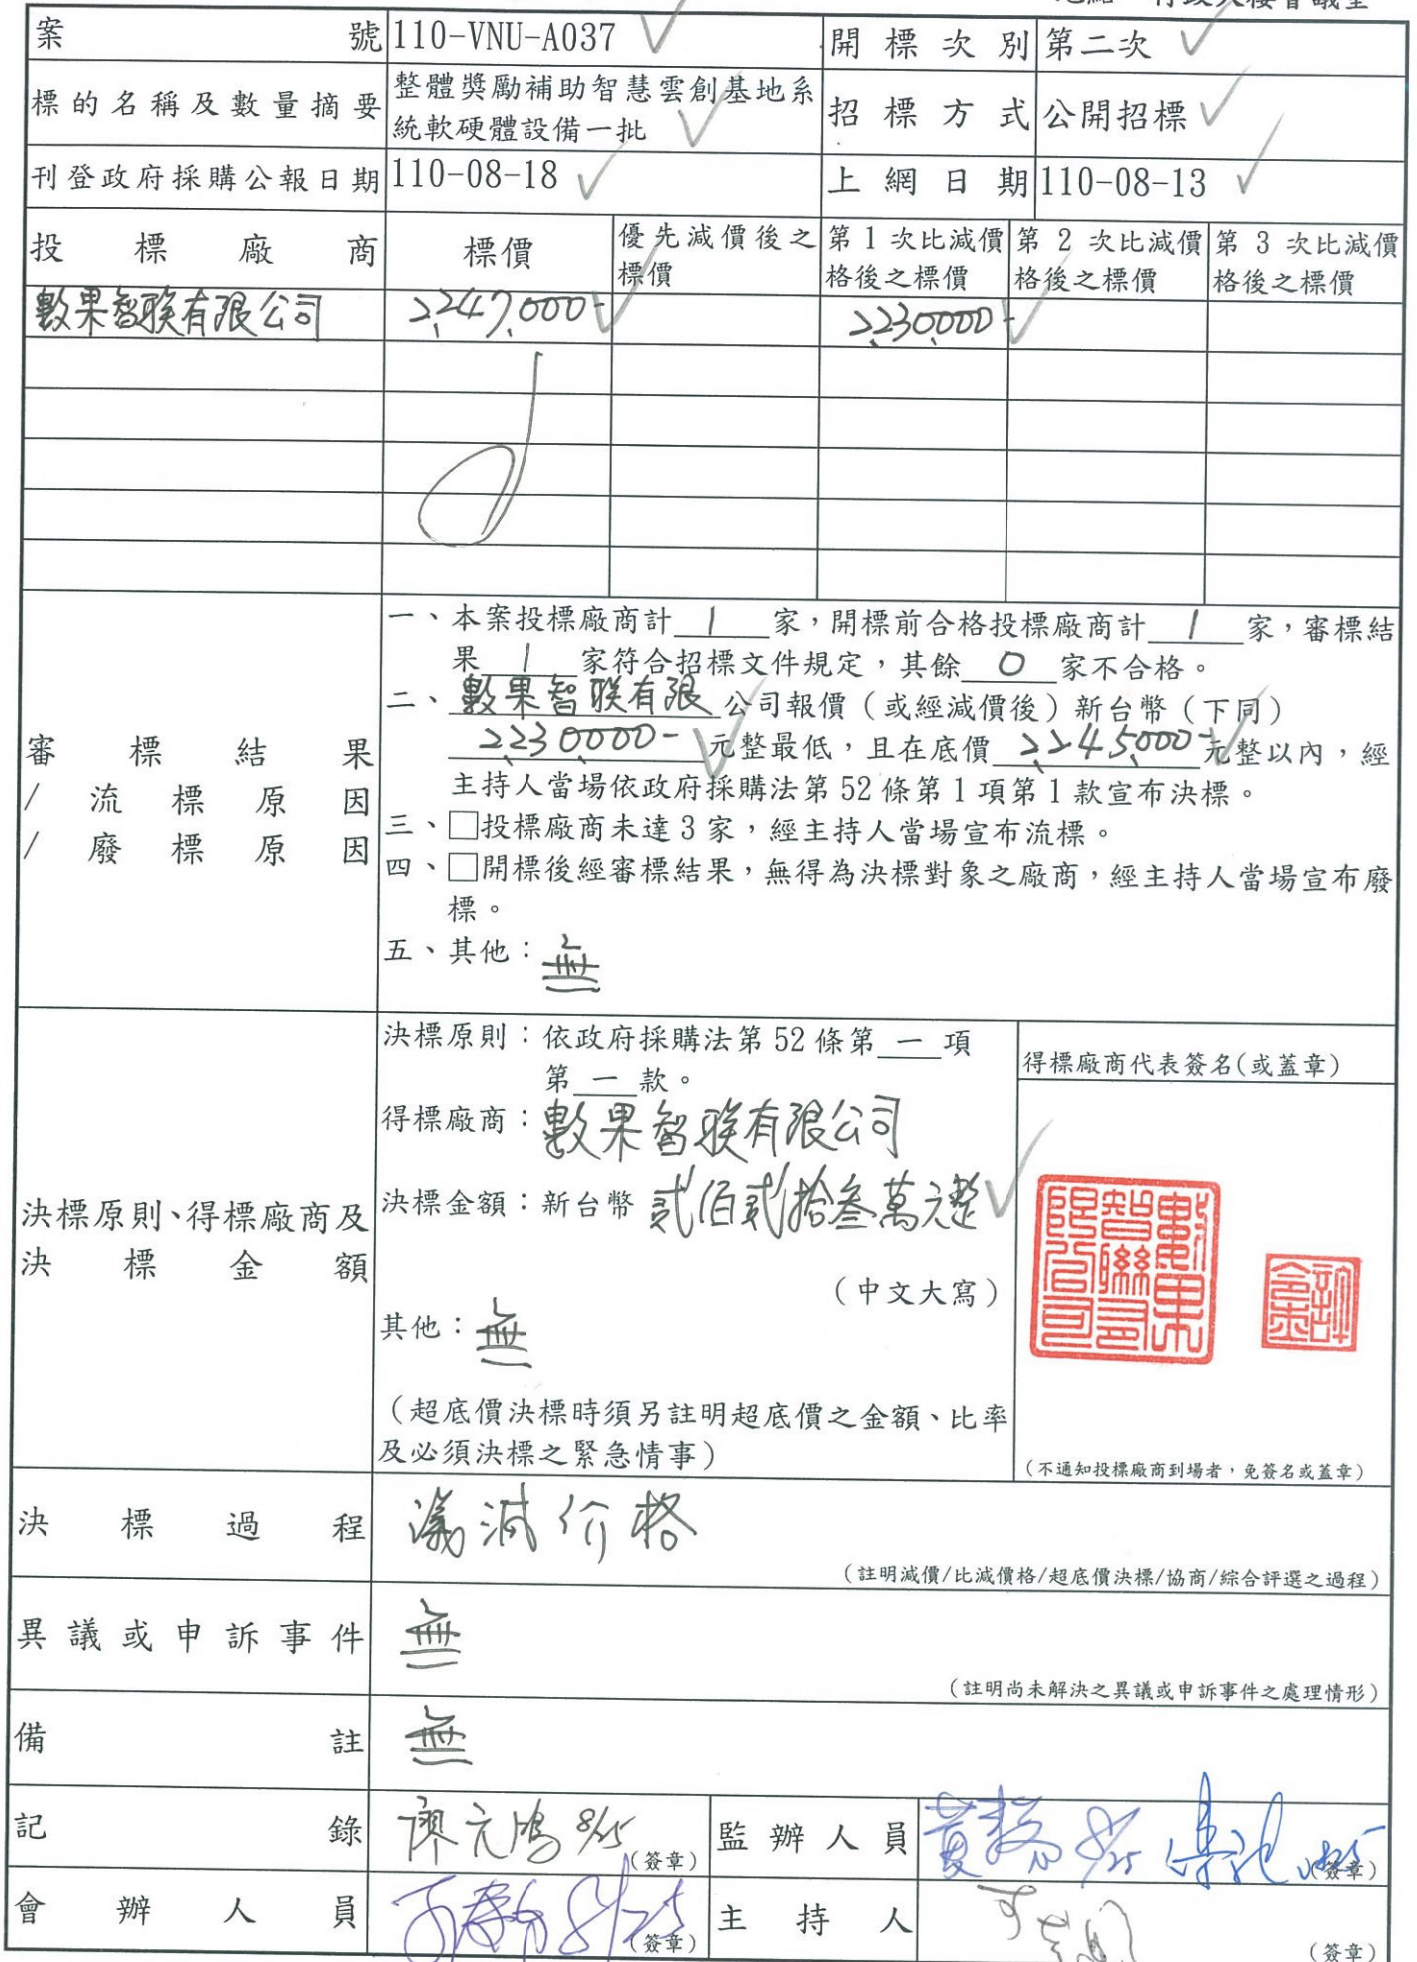 案號 110-VNU-A037 開標次別 第二次
標的名稱及數量摘要 整體獎勵補助智慧雲創基地系
統軟硬體設備一批 招標方式 公開招標
刊登政府採購公報日期 110-08-18 上網日期 110-08-13
投標廠商 標價 優先減價後之 第 1 次比減價 第 2 次比減價 第 3 次比減價
標價 格後之標價 格後之標價 格後之標價
數果智联有限公司 2,247,000- 2,230,000-
審標結果
/流標原因
/廢標原因
一、本案投標廠商計 1 家,開標前合格投標廠商計 1 家,審標結
果 1 家符合招標文件規定,其餘 0 家不合格。
二、數果智联有限公司報價(或經減價後)新台幣(下同)
2,230,000- 元整最低,且在底價 2,245,000- 元整以內,經
主持人當場依政府採購法第 52 條第 1 項第 1 款宣布決標。
三、□投標廠商未達 3 家,經主持人當場宣布流標。
四、□開標後經審標結果,無得為決標對象之廠商,經主持人當場宣布廢
標。
五、其他:無
決標原則、得標廠商及
決標金額
決標原則:依政府採購法第 52 條第 一 項
第 一 款。
得標廠商:數果智联有限公司
決標金額:新台幣 貳佰貳拾叁萬元整
(中文大寫)
其他:無
(超底價決標時須另註明超底價之金額、比率
及必須決標之緊急情事)
得標廠商代表簽名(或蓋章)
數果智聯有限公司
(不通知投標廠商到場者,免簽名或蓋章)
決標過程 議減价格
(註明減價/比減價格/超底價決標/協商/綜合評選之過程)
異議或申訴事件 無
(註明尚未解決之異議或申訴事件之處理情形)
備註 無
記錄 8/25 (簽章) 監辦人員 8/25 (簽章)
會辦人員 8/25 (簽章) 主持人 (簽章)